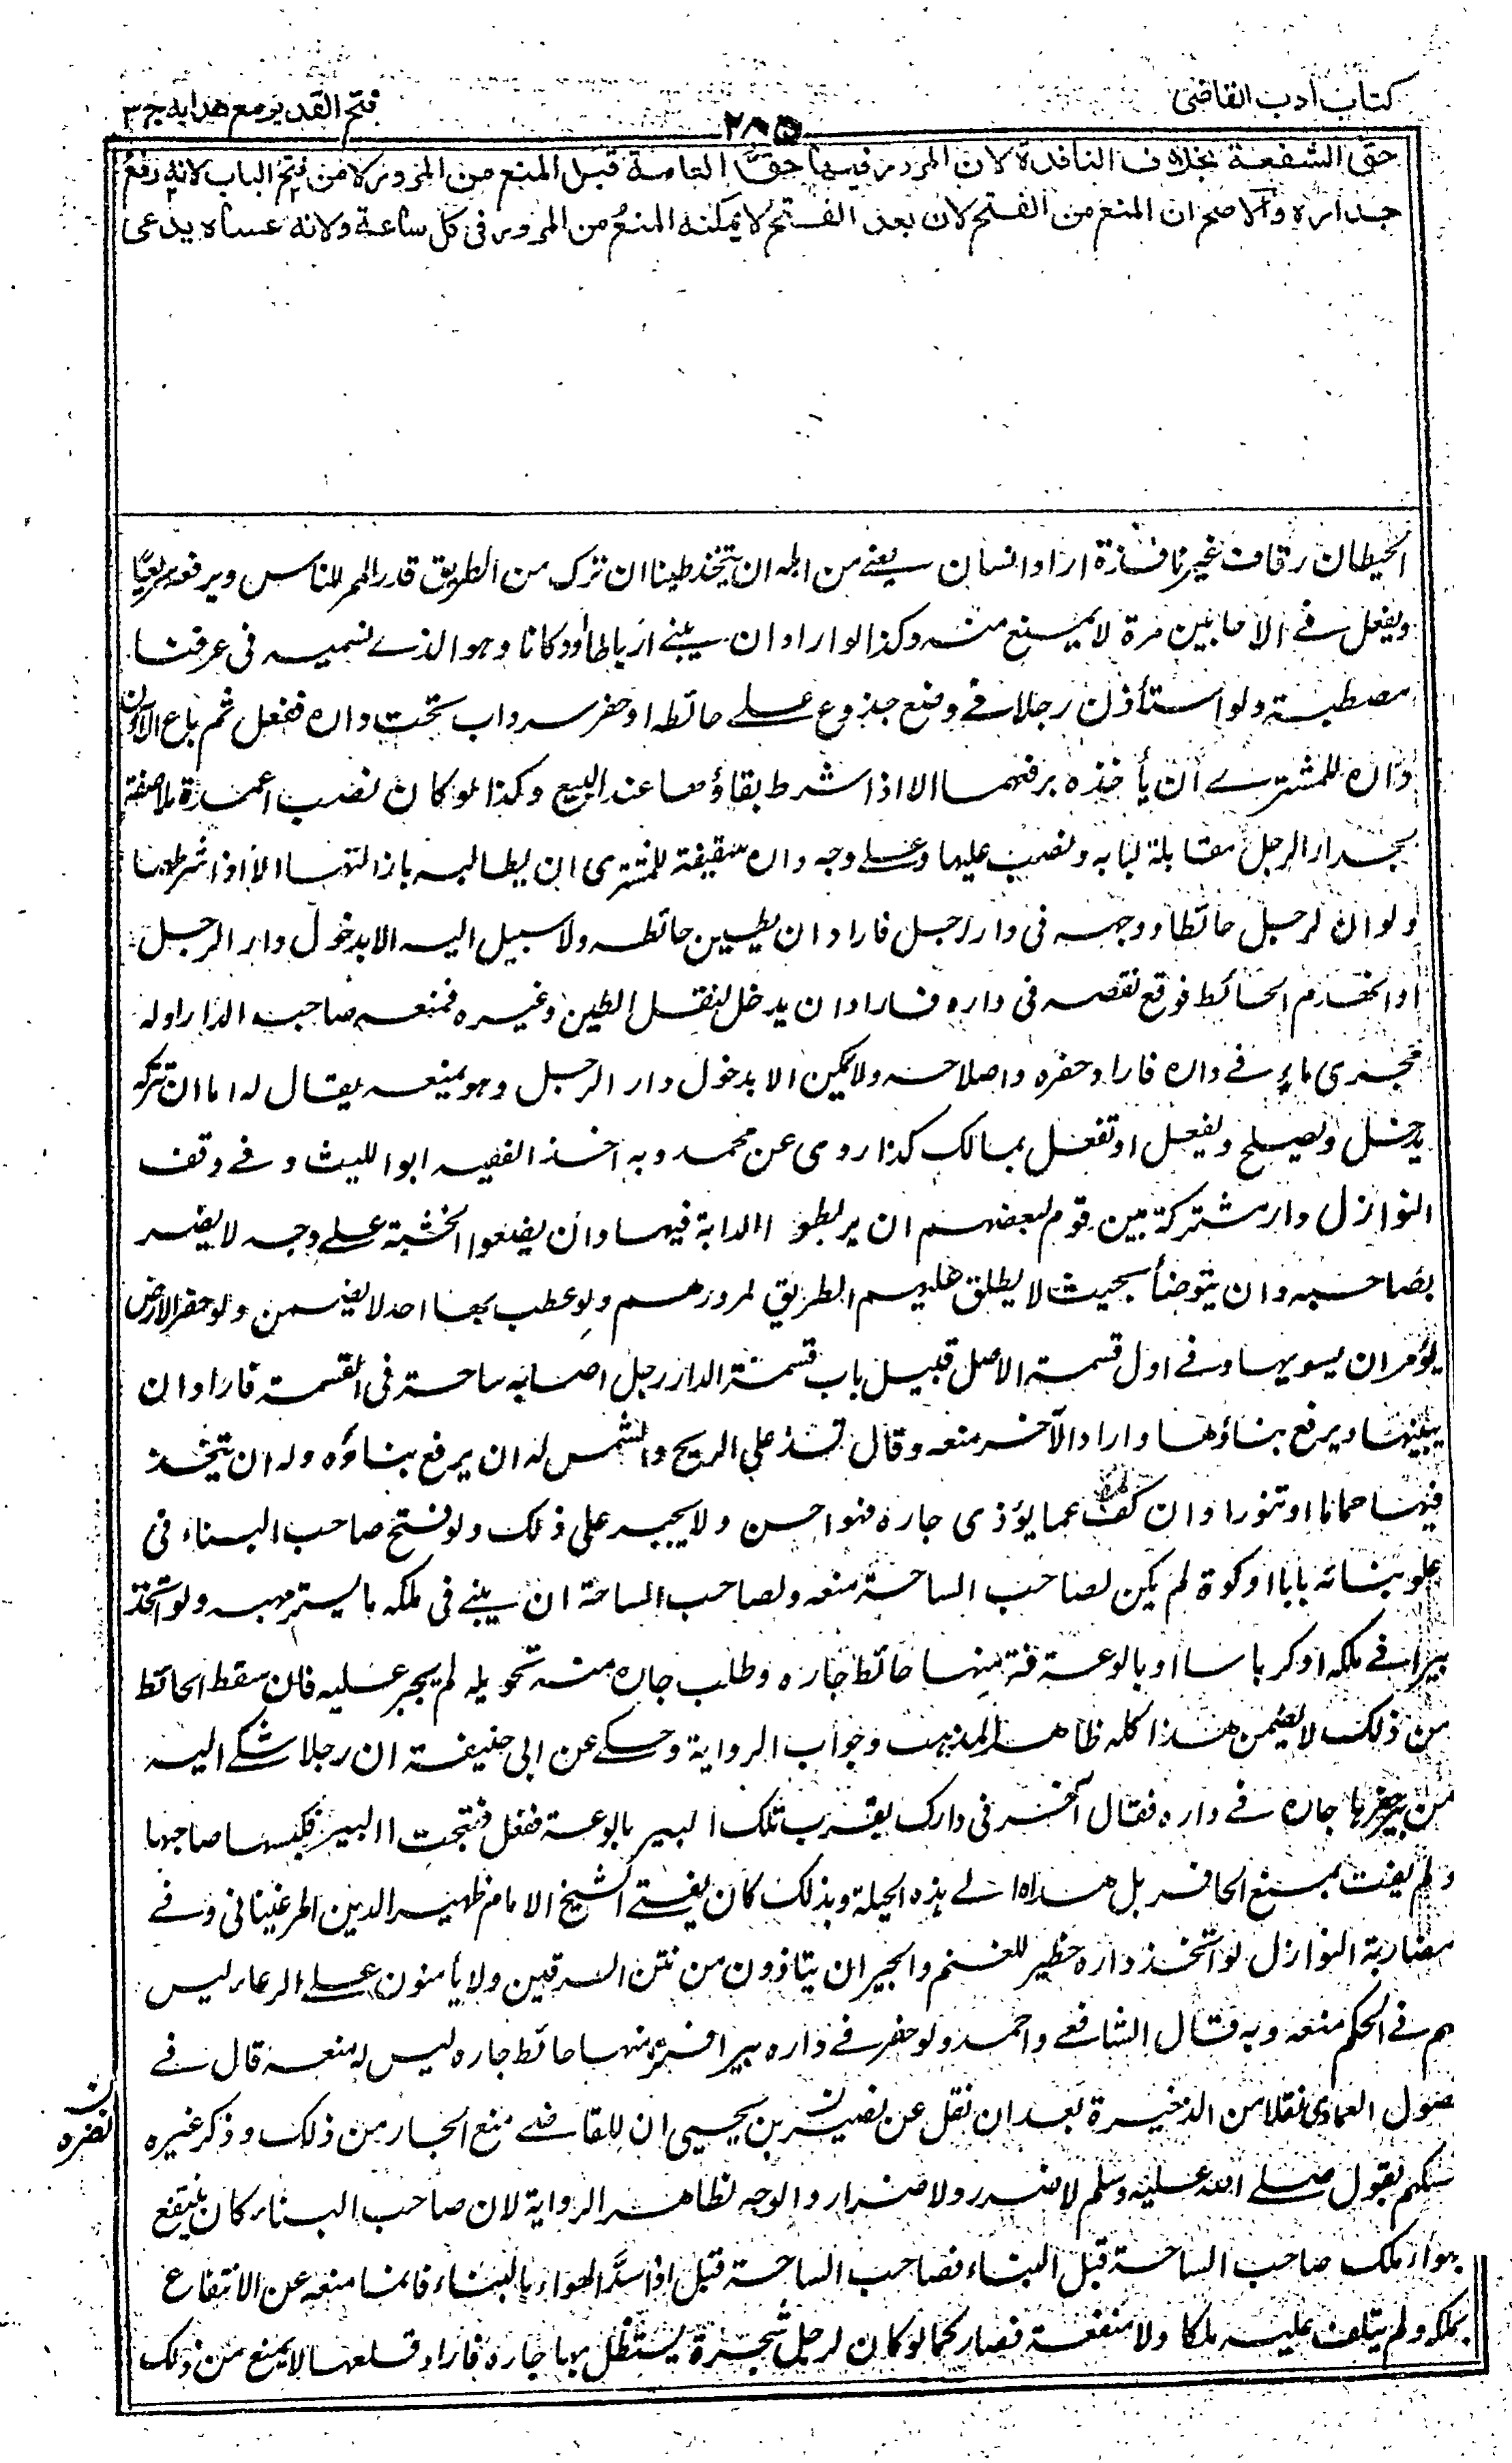 كتاب أدب القاضى
٢٨٥
فتح القدير مع هدايه ج ٣
حق الشفعة بخلاف النافذة لان المرور فيها حق العامة قيل المنع من المرور لا من فتح الباب لانه رفع
جداره والاصح ان المنع من الفتح لان بعد الفتح لا يمكنه المنع من المرور فى كل ساعة ولانه عساه يدعى
الحيطان زقاق غير نافذة اراد انسان يعنے من اہلہ ان يتخذ طينا ان ترك من الطريق قدر الممر للناس ويرفعه سريعا
ويفعل فے الاحابين مرة لا يمنع منه وكذا لو اراد ان يبنے اربا طا اودكانا وهو الذے نسميه فى عرفنا
مصطبة ولو استأذن رجلا فے وضع جذوع علے حائطه او حفر سرداب تحت داره ففعل ثم باع الآذن
داره للمشترے ان يأخذه برفعهما الا اذا شرط بقاؤهما عند البيع وكذا لو كان نصب اعمدة ملاصقة
بجدار الرجل مقابلة لبابه ونصب عليها وعلے وجه داره سقيفة للمشترى ان يطالبه بازالتها الا اذا شرطها
ولو ان لرجل حائطا ووجهه فى دار رجل فاراد ان يطين حائطه ولا سبيل اليه الا بدخول دار الرجل
او انهدم الحائط فوقع نقضه فى داره فاراد ان يدخل لنقل الطين وغيره فمنعه صاحب الدار او له
مجرى ماء فے داره فاراد حفره واصلاحه ولا يمكن الا بدخول دار الرجل وهو يمنعه يقال له اما ان تتركه
يدخل ويصلح ويفعل او تفعل بمالك كذا روى عن محمد وبه اخذ الفقيه ابو الليث وفے وقف
النوازل دار مشتركة بين قوم لبعضهم ان يربطوا الدابة فيها وان يضعوا الخشبة علے وجه لا يضر
بصاحبه وان يتوضأ بحيث لا يطلق عليهم الطريق لمرورهم ولو عطب بها احد لا يضمن ولو حفر الارض
يؤمر ان يسويها وفے اول قسمة الاصل قبيل باب قسمة الدار رجل اصابه ساحة فى القسمة فاراد ان
يبنيها ويرفع بناؤها واراد الآخر منعه وقال تسد على الريح والشمس له ان يرفع بناؤه وله ان يتخذ
فيها حماما او تنورا وان كف عما يؤذى جاره فهو احسن ولا يجبر على ذلك ولو فتح صاحب البناء فى
علو بنائه بابا او كوة لم يكن لصاحب الساحة منعه ولصاحب الساحة ان يبنے فى ملكه ما يستر جهته ولو اتخذ
بيرا فے ملكه او كرباسا او بالوعة فنز منها حائط جاره وطلب جاره منه تحويله لم يجبر عليه فان سقط الحائط
من ذلك لا يضمن هذا كله ظاهر المذهب وجواب الرواية وحكے عن ابى حنيفة ان رجلا شكے اليه
من بير حفرها جاره فے داره فقال احفر فى دارك بقرب تلك البير بالوعة ففعل فنجت البير فكبسها صاحبها
ولم يفت بمنع الحافر بل هداه الے هذه الحيلة وبذلك كان يفتے الشيخ الامام ظهير الدين المرغينانى وفے
مضاربة النوازل لو اتخذ داره حظير للغنم والجيران يتاذون من نتن السرقين ولا يأمنون علے الرعاء ليس
لهم فے الحكم منعه وبه قال الشافعے واحمد ولو حفر فے داره بيرا فنز منها حائط جاره ليس له منعه قال فے
فصول العمادى نقلا من الذخيرة بعد ان نقل عن نصير بن يحيى ان للقاضے منع الجار من ذلك وذكر غيره
بقول صلے الله عليه وسلم لا ضرر ولا ضرار والوجه لظاهر الرواية لان صاحب البناء كان ينتفع
بهواء ملك صاحب الساحة قبل البناء فصاحب الساحة قبل اذا سد الهواء بالبناء فانما منعه عن الانتفاع
بملكه ولم يتلف عليه ملكا ولا منفعة فصار كما لو كان لرجل شجرة يستظل بها جاره فاراد قلعها لا يمنع من ذلك